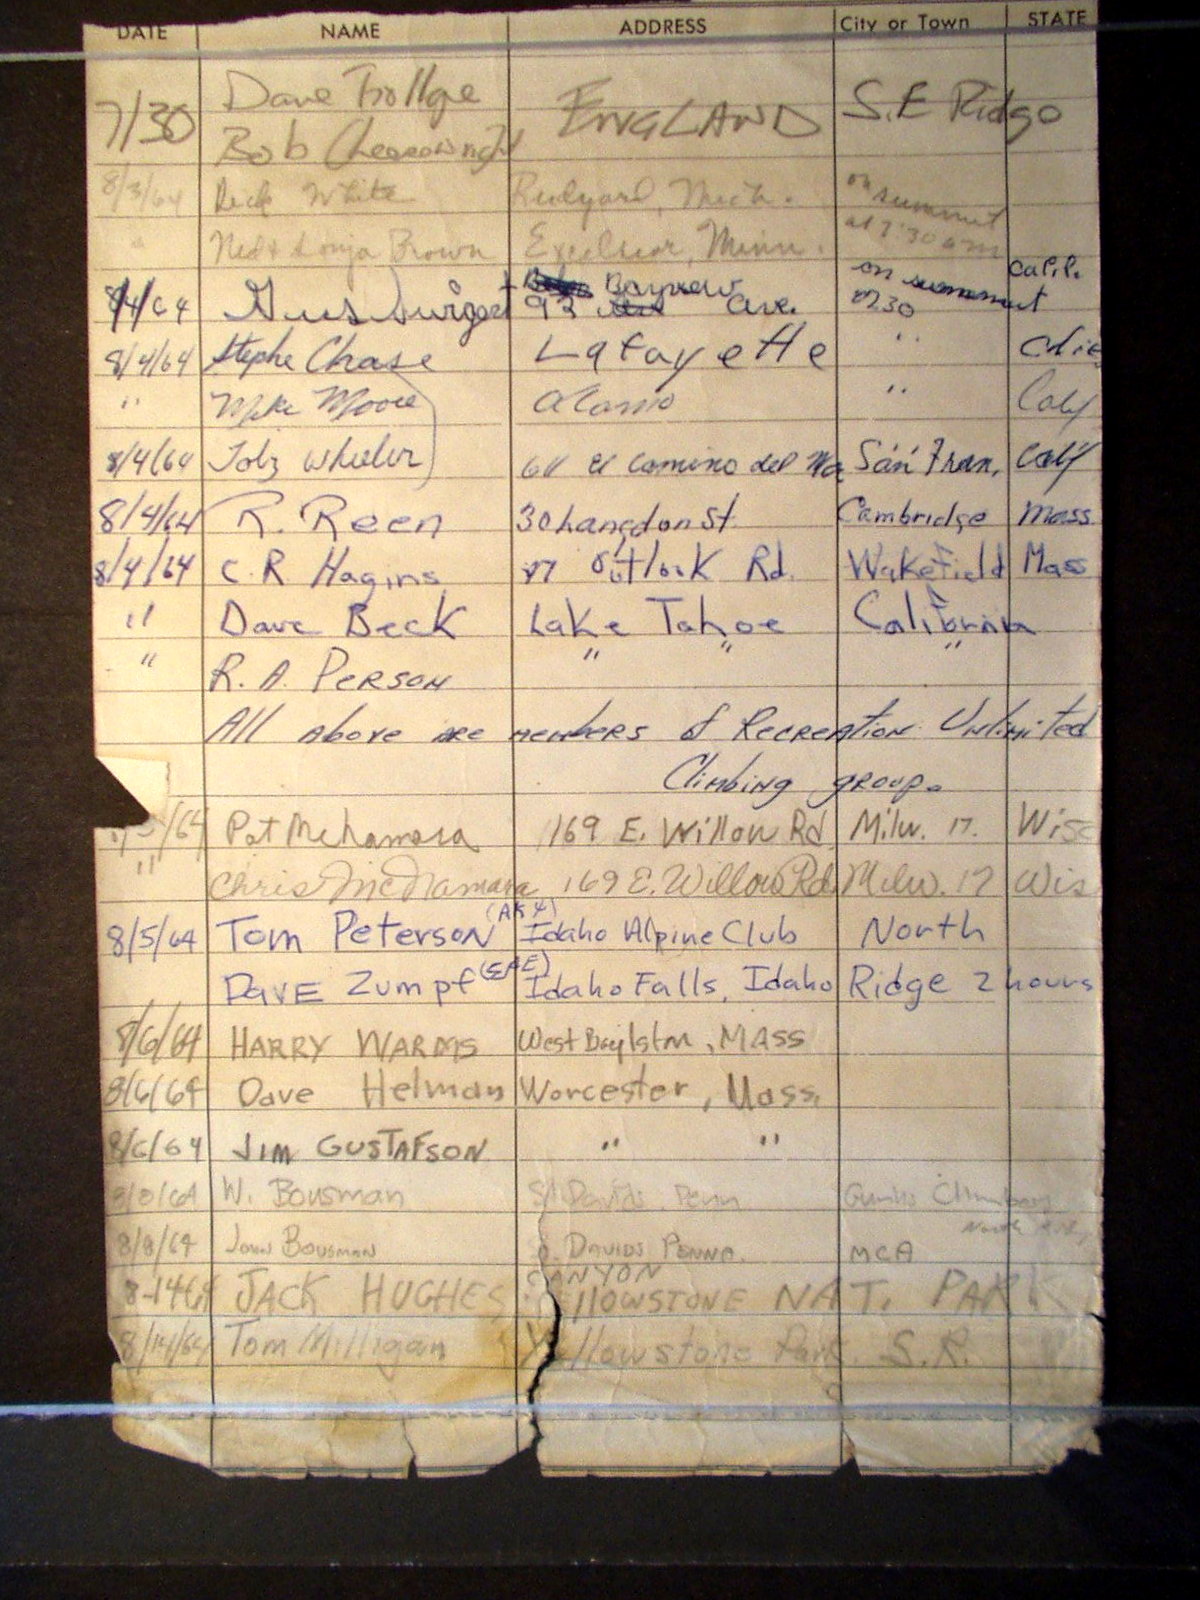 DATE NAME ADDRESS City or Town STATE
7/30 Dave ENGLAND S.E Ridge
Bob
8/3/64 Dick White Rudyard, Mich. on summit
" Ned & Sonja Brown Excelsior, Minn. at 7:30 am
8/4/64 Gus 92 Bayview Ave. on summit 0730 Calif.
8/4/64 Stephe Chase Lafayette "
" Mike Moore Alamo " Calif
8/4/64 Toby Wheeler 60 El Camino del Mar San Fran, Calif
8/4/64 R. Reen 30 Langdon St. Cambridge Mass.
8/4/64 C R Hagins Outlook Rd. Wakefield Mass
" Dave Beck Lake Tahoe California
" R. A. PERSON " " "
All above are members of Recreation Unlimited
Climbing group.
/64 Pat McNamara 169 E. Willow Rd Milw. 17. Wisc
" Chris McNamara 169 E. Willow Rd. Milw. 17 Wis
8/5/64 Tom Peterson Idaho Alpine Club North
DAVE Zumpf (SAE) Idaho Falls, Idaho Ridge 2 hours
8/6/64 HARRY WARMS West Boylston, MASS
8/6/64 Dave Helman Worcester, Mass.
8/6/64 JIM GUSTAFSON " "
8/8/64 W. Bousman St. Davids, Penn
8/8/64 John Bousman St. DAVIDS PENNA. MCA
8-14-64 JACK HUGHES CANYON YELLOWSTONE NAT. PARK
8/14/64 Tom Milligan Yellowstone Park. S.R.